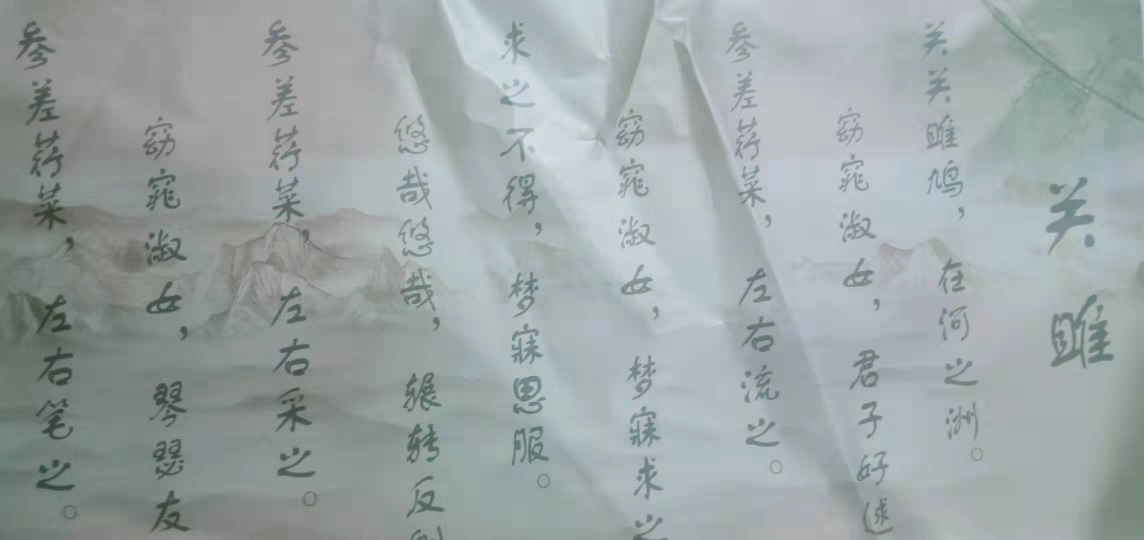 关雎
关关雎鸠，在河之洲。
窈窕淑女，君子好逑
参差荇菜，左右流之。
窈窕淑女，梦寐求之
求之不得，梦寐思服。
悠哉悠哉，辗转反
参差荇菜，左右采之。
窈窕淑女，琴瑟友
参差荇菜，左右笔之。